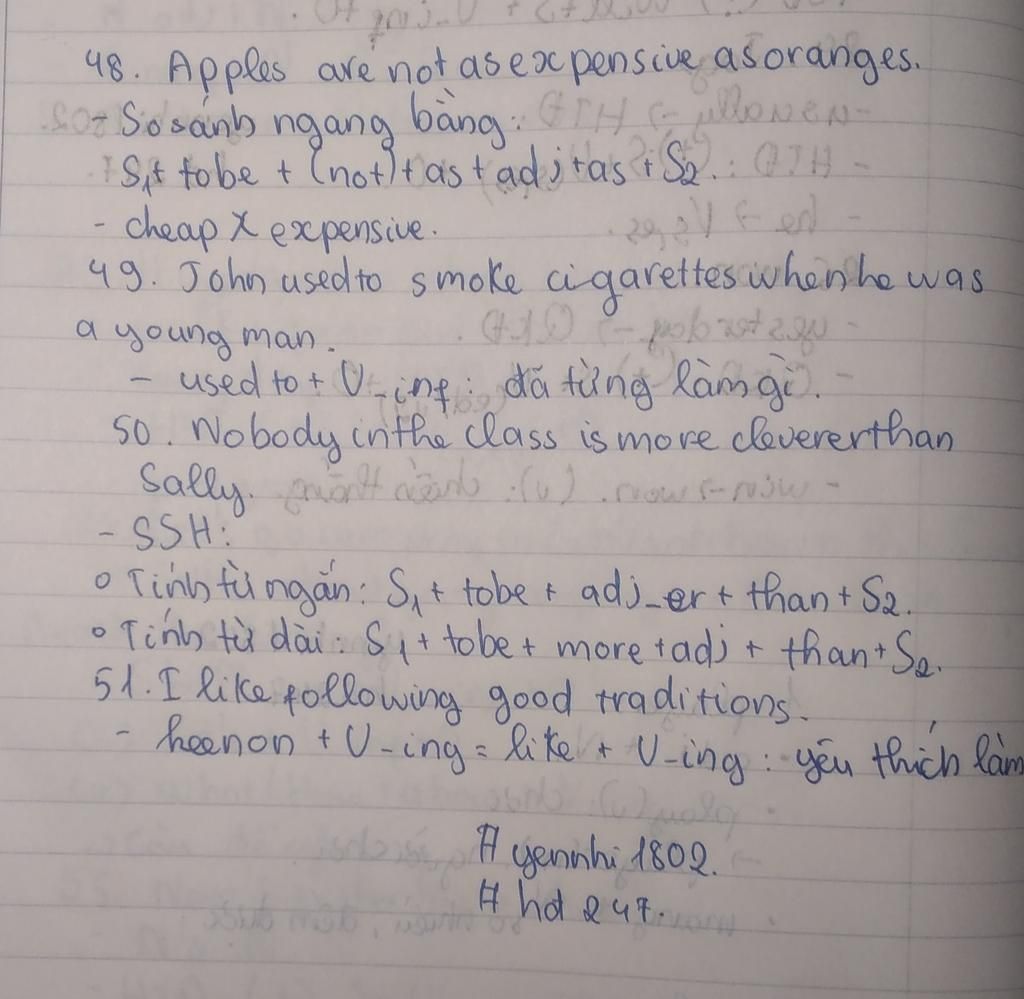 48. Apples are not as expensive as oranges.
- So sánh ngang bằng:
S1 + tobe + (not) + as + adj + as + S2.
- cheap X expensive.
49. John used to smoke cigarettes when he was
a young man.
- used to + V-inf: đã từng làm gì.
50. Nobody in the class is more cleverer than
Sally.
- SSH:
o Tính từ ngắn: S1 + tobe + adj-er + than + S2.
o Tính từ dài: S1 + tobe + more + adj + than + S2.
51. I like following good traditions.
- keenon + V-ing = like + V-ing: yêu thích làm
# yennhi1802.
# hd247.